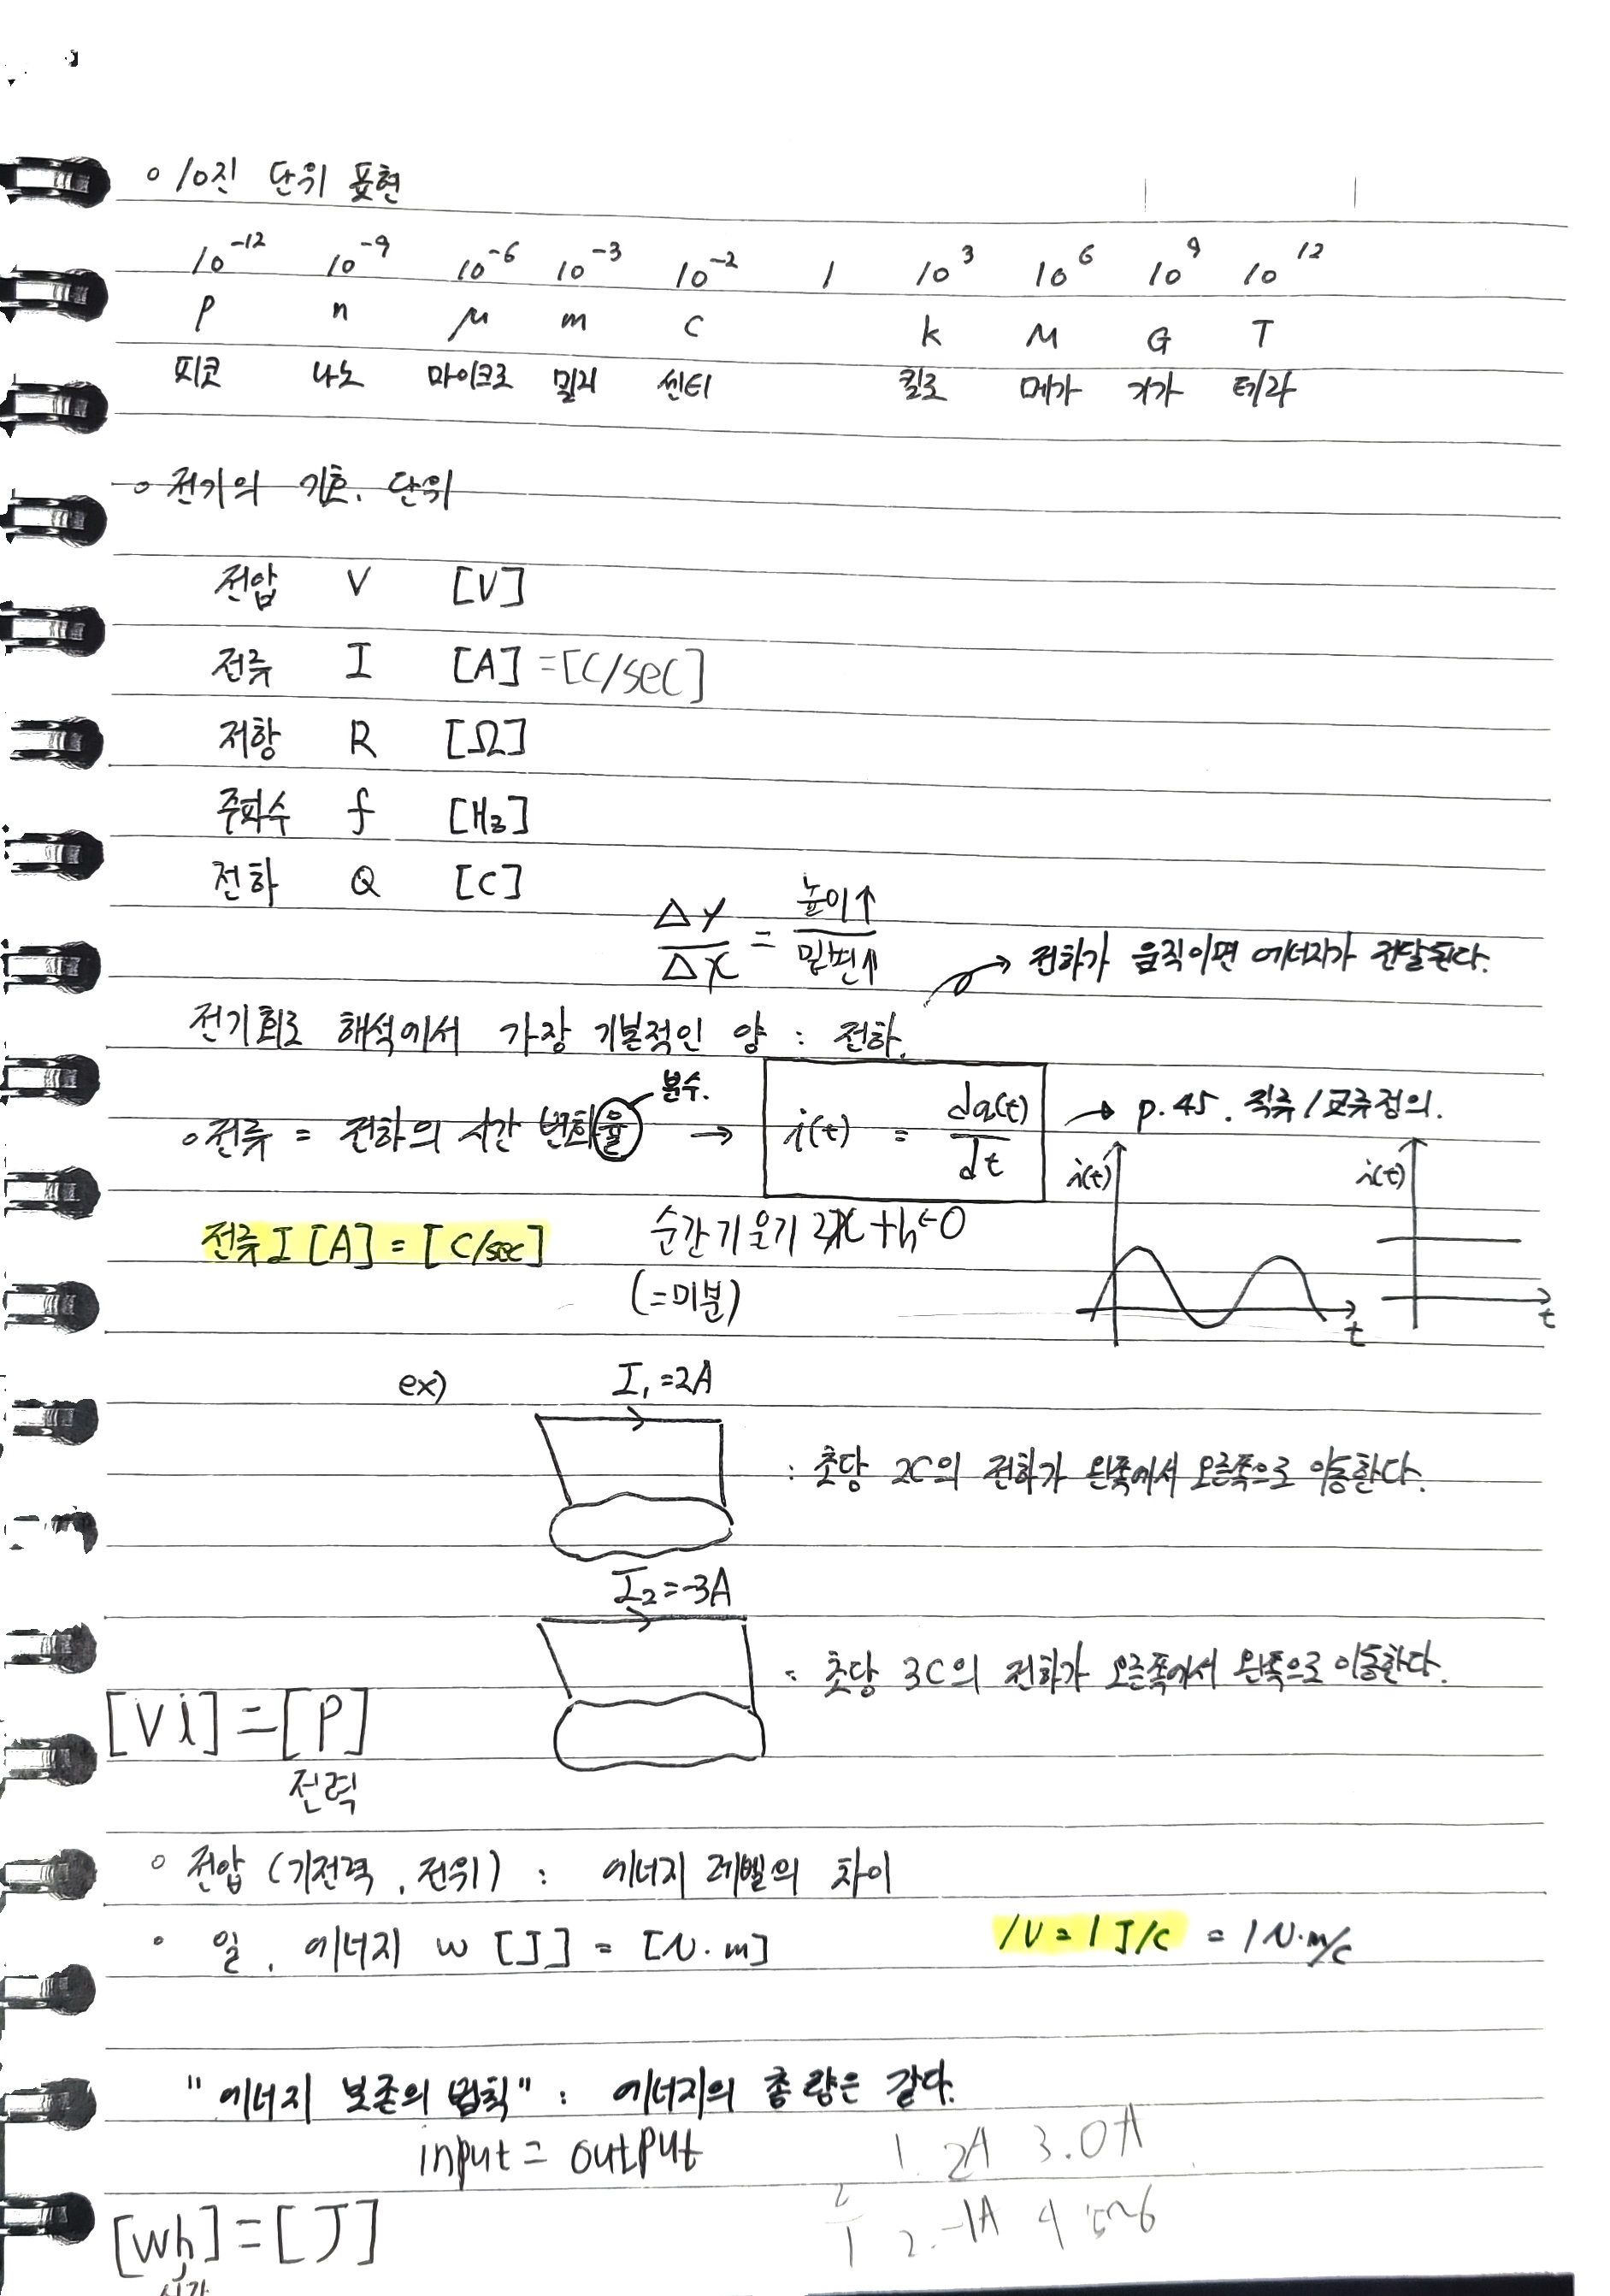 ○ 10진 단위 표현
10^-12 10^-9 10^-6 10^-3 10^-2 1 10^3 10^6 10^9 10^12
p n μ m c k M G T
피코 나노 마이크로 밀리 센티 킬로 메가 기가 테라
○ 전기의 기호, 단위
전압 V [V]
전류 I [A] = [C/sec]
저항 R [Ω]
주파수 f [Hz]
전하 Q [C]
Δy/Δx = 높이↑/밑변↑
→ 전하가 움직이면 에너지가 전달된다.
전기회로 해석에서 가장 기본적인 양 : 전하.
분수.
○ 전류 = 전하의 시간 변화율 → i(t) = dq(t)/dt → p.45. 직류/교류정의.
i(t) i(t)
전류 I [A] = [C/sec]
순간기울기
(=미분)
t t
ex) I₁=2A
: 초당 2C의 전하가 왼쪽에서 오른쪽으로 이동한다.
I₂=-3A
: 초당 3C의 전하가 오른쪽에서 왼쪽으로 이동한다.
[Vi]=[P]
전력
○ 전압 (기전력, 전위) : 에너지 레벨의 차이
○ 일, 에너지 w [J] = [N·m] 1V = 1 J/C = 1 N·m/C
"에너지 보존의 법칙" : 에너지의 총량은 같다.
input = output
1. 2A 3. 0A
2. -1A 4
[Wh]=[J]
시간